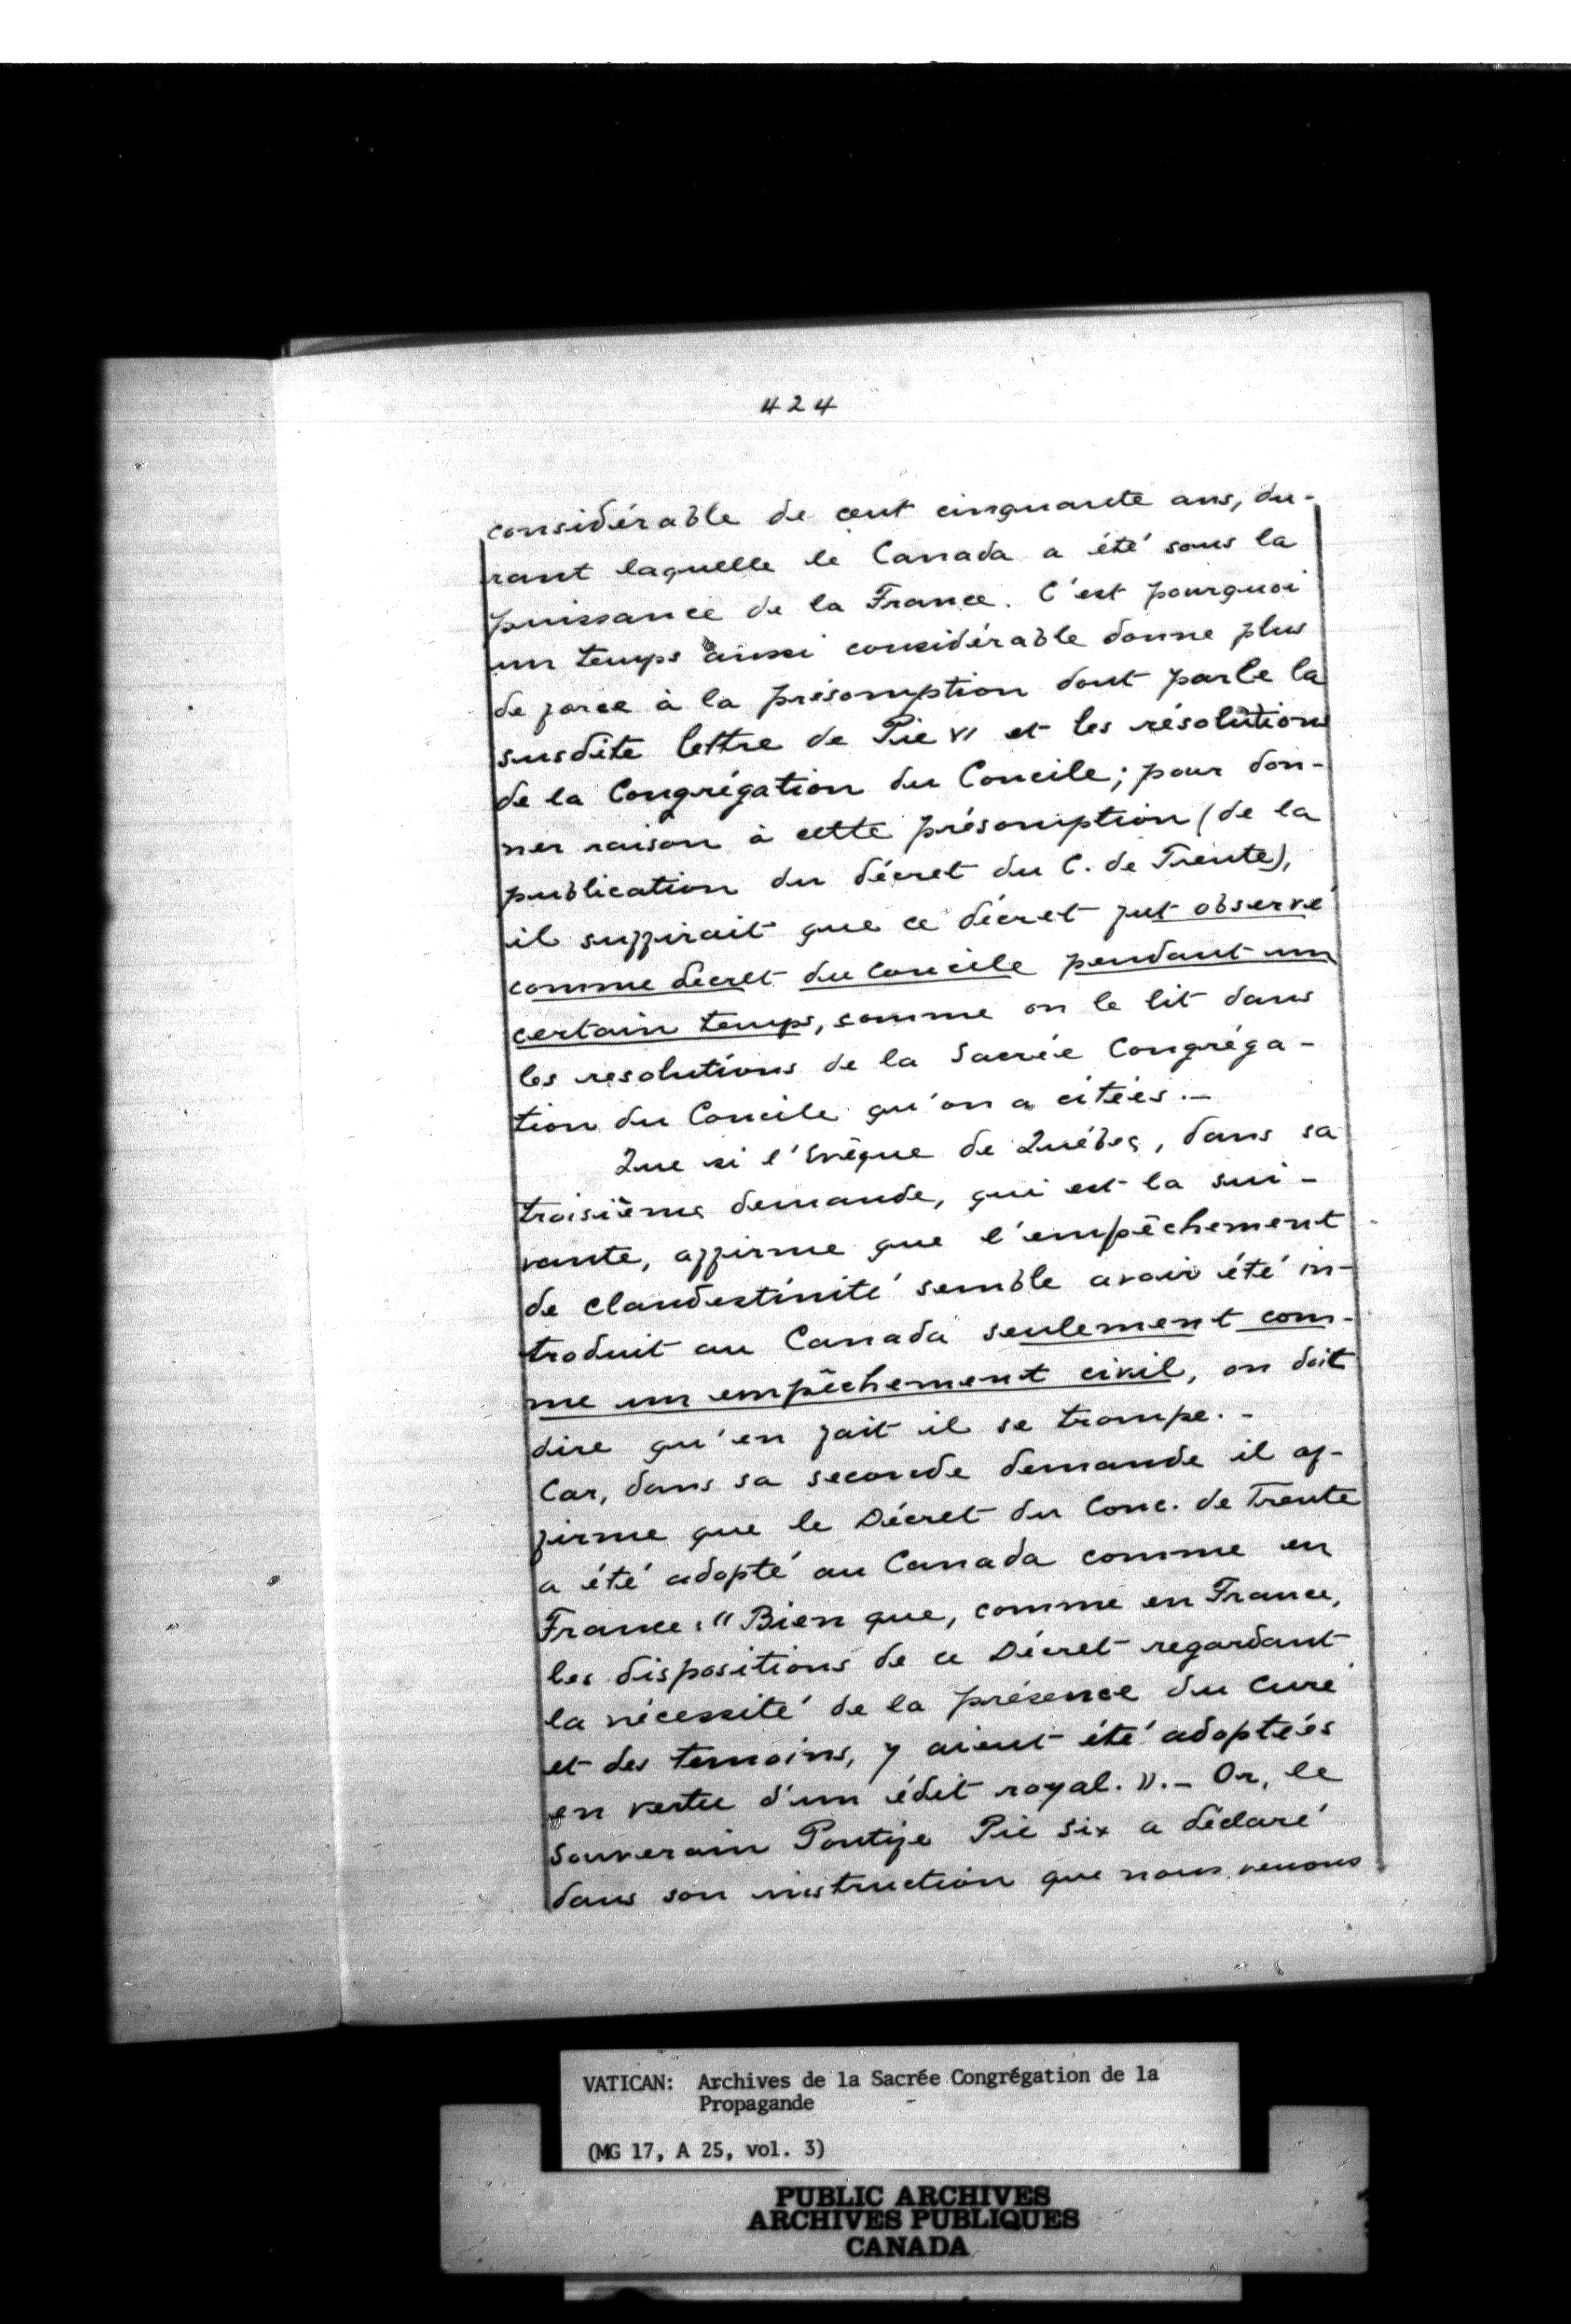 424
considérable de cent cinquante ans, du-
rant laquelle le Canada a été sous la
puissance de la France. C'est pourquoi
un temps aussi considérable donne plus
de force à la présomption dont parle la
susdite lettre de Pie VI et les résolutions
de la Congrégation du Concile; pour don-
ner raison à cette présomption (de la
publication du décret du C. de Trente),
il suffirait que ce décret fut observé
comme decret du Concile pendant un
certain temps, comme on le lit dans
les resolutions de la Sacrée Congréga-
tion du Concile qu'on a citées.-
Que si l'Evêque de Québec, dans sa
troisième demande, qui est la sui-
vante, affirme que l'empêchement
de clandestinité semble avoir été in-
troduit au Canada seulement com-
me un empêchement civil, on doit
dire qu'en fait il se trompe.-
Car, dans sa seconde demande il af-
firme que le Décret du Conc. de Trente
a été adopté au Canada comme en
France: "Bien que, comme en France,
les dispositions de ce Décret regardant
la nécessité de la présence du Curé
et des temoins, y aient été adoptées
en vertu d'un édit royal.".- Or, le
Souverain Pontife Pie Six a déclaré
dans son instruction que nous venons
VATICAN: Archives de la Sacrée Congrégation de la
Propagande -
(MG 17, A 25, vol. 3)
PUBLIC ARCHIVES
ARCHIVES PUBLIQUES
CANADA